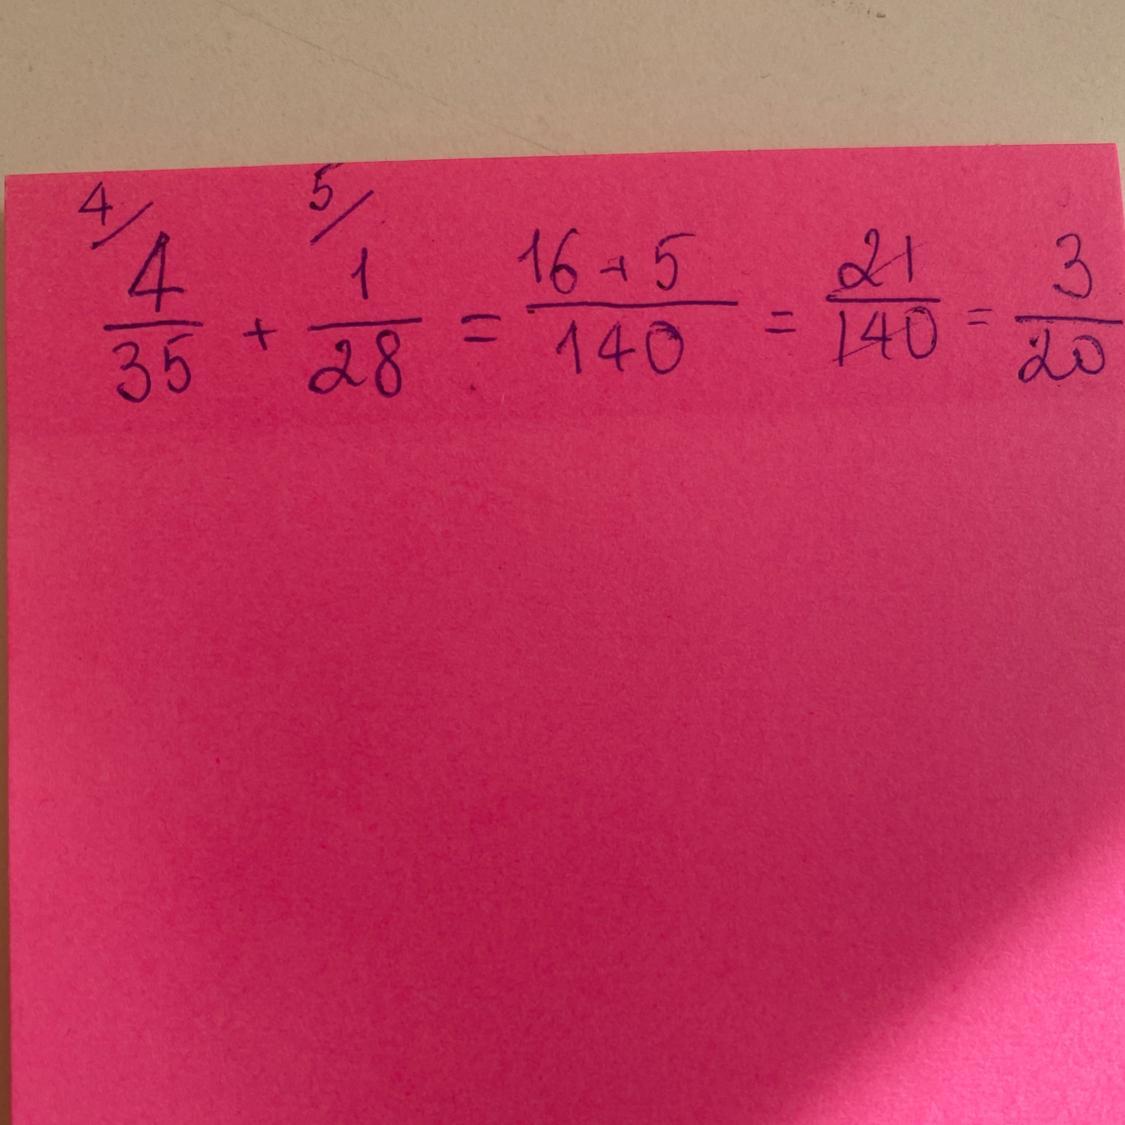 4/ 5/
4/35 + 1/28 = 16+5/140 = 21/140 = 3/20